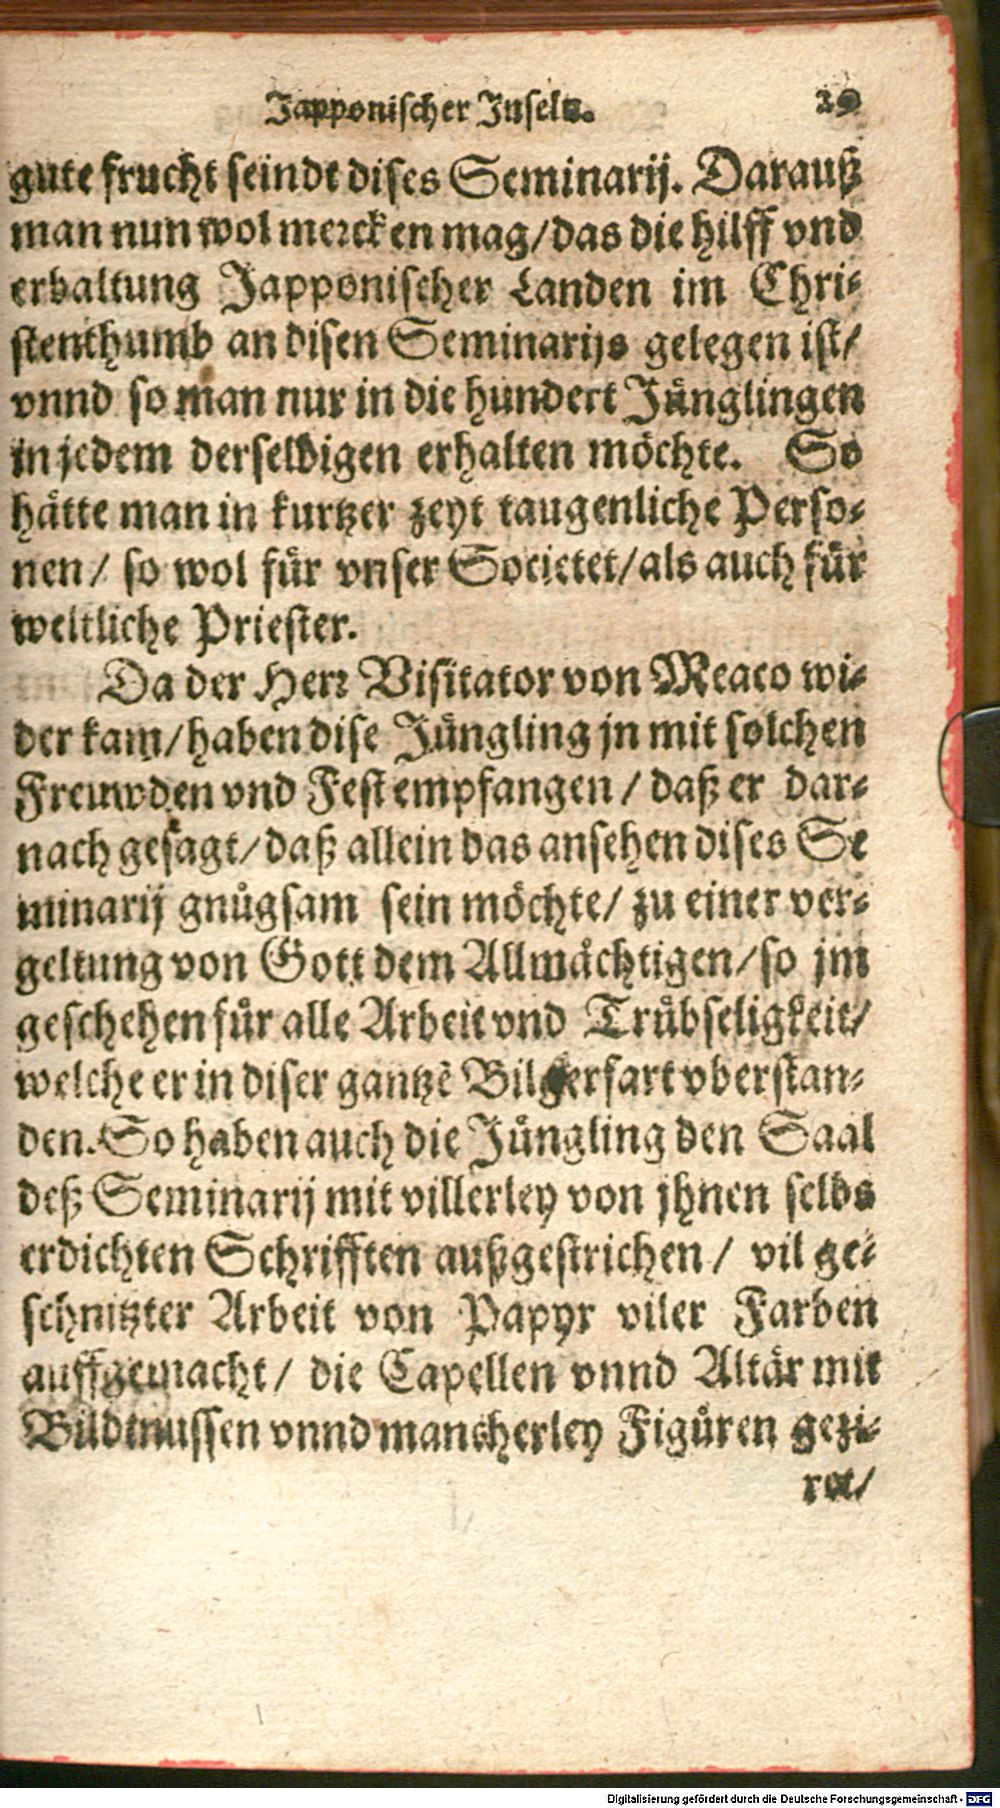 Japponischer Inseln. 29
gute frucht seindt dises Seminarij. Darauß
man nun wol mercken mag/ das die hilff vnd
erhaltung Japponischer Landen im Chri-
stenthumb an disen Seminarijs gelegen ist/
vnnd so man nur in die hundert Jüngling​en
in jedem derselbigen erhalten möchte. So
hätte man in kurtzer zeyt taugenliche Perso-
nen/ so wol für vnser Societet/ als auch für
weltliche Priester.
Da der Herr Visitator von Meaco wi-
der kam/ haben dise Jüngling jn mit solchen
Freuwden vnd Fest empfangen/ daß er dar-
nach gesagt/ daß allein das ansehen dises Se
minarij gnůgsam sein möchte/ zu einer ver-
geltung von Gott dem Allmächtigen/ so jm
geschehen für alle Arbeit vnd Trübseligkeit/
welche er in diser gantzē Bilgerfart vberstan-
den. So haben auch die Jüngling den Saal
deß Seminarij mit villerley von jhnen selbs
erdichten Schrifften außgestrichen/ vil ge-
schnitzter Arbeit von Papyr viler Farben
auffgemacht/ die Capellen vnnd Altär mit
Bildtnussen vnnd mancherley Figůren gezi-
ret/
Digitalisierung gefördert durch die Deutsche Forschungsgemeinschaft - DFG